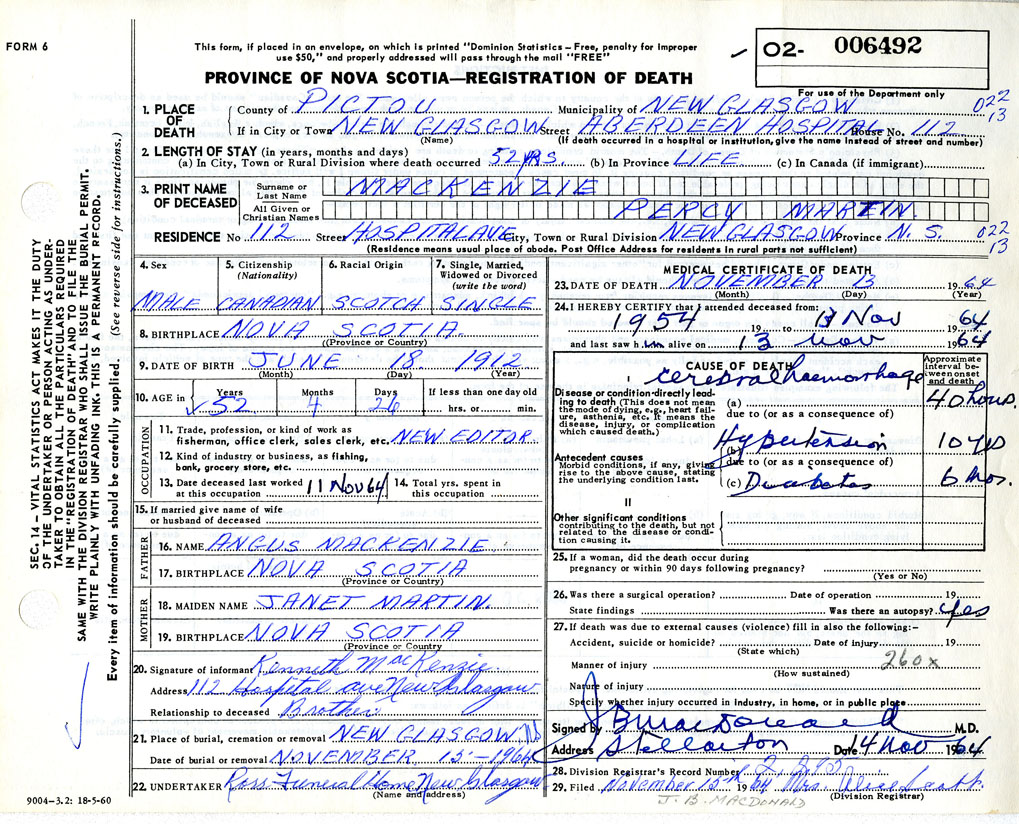 FORM 6
This form, if placed in an envelope, on which is printed "Dominion Statistics – Free, penalty for improper
use $50," and properly addressed will pass through the mail "FREE"
PROVINCE OF NOVA SCOTIA—REGISTRATION OF DEATH
✓ 02- 006492
For use of the Department only
SEC. 14 – VITAL STATISTICS ACT MAKES IT THE DUTY
OF THE UNDERTAKER OR PERSON ACTING AS UNDER-
TAKER TO OBTAIN ALL THE PARTICULARS REQUIRED
IN THE "REGISTRATION OF DEATH" AND TO FILE THE
SAME WITH THE DIVISION REGISTRAR WHO SHALL ISSUE THE BURIAL PERMIT.
WRITE PLAINLY WITH UNFADING INK. THIS IS A PERMANENT RECORD.
Every item of information should be carefully supplied. (See reverse side for instructions.)
1. PLACE OF DEATH County of PICTOU Municipality of NEW GLASGOW 022 13
If in City or Town NEW GLASGOW Street ABERDEEN HOSPITAL House No. 112
(Name) (If death occurred in a hospital or institution, give the name instead of street and number)
2. LENGTH OF STAY (in years, months and days)
(a) In City, Town or Rural Division where death occurred 52 YRS. (b) In Province LIFE (c) In Canada (if immigrant)
3. PRINT NAME OF DECEASED Surname or Last Name MACKENZIE
All Given or Christian Names PERCY MARTIN.
RESIDENCE No 112 Street HOSPITAL AVE City, Town or Rural Division NEW GLASGOW Province N. S. 022 13
(Residence means usual place of abode. Post Office Address for residents in rural parts not sufficient)
4. Sex 5. Citizenship (Nationality) 6. Racial Origin 7. Single, Married, Widowed or Divorced (write the word)
MALE CANADIAN SCOTCH SINGLE
8. BIRTHPLACE NOVA SCOTIA.
(Province or Country)
9. DATE OF BIRTH JUNE 18 1912
(Month) (Day) (Year)
10. AGE in Years Months Days If less than one day old
✓ 52 4 26 hrs. or min.
OCCUPATION
11. Trade, profession, or kind of work as
fisherman, office clerk, sales clerk, etc. NEW EDITOR.
12. Kind of industry or business, as fishing,
bank, grocery store, etc.
13. Date deceased last worked at this occupation 11 Nov 64 14. Total yrs. spent in this occupation
15. If married give name of wife
or husband of deceased
FATHER
16. NAME ANGUS MACKENZIE
17. BIRTHPLACE NOVA SCOTIA
(Province or Country)
MOTHER
18. MAIDEN NAME JANET MARTIN.
19. BIRTHPLACE NOVA SCOTIA
(Province or Country)
20. Signature of informant Kenneth MacKenzie
Address 112 Hospital ave New Glasgow
Relationship to deceased Brother
21. Place of burial, cremation or removal NEW GLASGOW NS
Date of burial or removal NOVEMBER 15 - 1964
22. UNDERTAKER Ross Funeral Home New Glasgow
(Name and address)
9004–3.2: 18-5-60
MEDICAL CERTIFICATE OF DEATH
23. DATE OF DEATH NOVEMBER 13 19 64
(Month) (Day) (Year)
24. I HEREBY CERTIFY that I attended deceased from:
1954 19 to 13 Nov 1964
and last saw h im alive on 13 nov 1964
CAUSE OF DEATH Approximate interval between onset and death
I cerebral haemorrhage
Disease or condition directly leading to death (This does not mean the mode of dying, e.g., heart failure, asthenia, etc. It means the disease, injury, or complication which caused death.) (a) 40 hours.
due to (or as a consequence of)
Hypertension 10 yrs
Antecedent causes
Morbid conditions, if any, giving rise to the above cause, stating the underlying condition last. (b) due to (or as a consequence of)
(c) Diabetes 6 mos.
II
Other significant conditions
contributing to the death, but not
related to the disease or condi-
tion causing it.
25. If a woman, did the death occur during
pregnancy or within 90 days following pregnancy?
(Yes or No)
26. Was there a surgical operation? Date of operation 19
State findings Was there an autopsy? yes
27. If death was due to external causes (violence) fill in also the following:–
Accident, suicide or homicide? Date of injury 19
(State which)
Manner of injury 260x
(How sustained)
Nature of injury
Specify whether injury occurred in Industry, in home, or in public place
Signed by J B MacDonald M.D.
Address Stellarton Date 14 Nov 1964
28. Division Registrar's Record Number
29. Filed November 15th 1964 Mrs. Alice Scott.
(Division Registrar)
J. B. MACDONALD